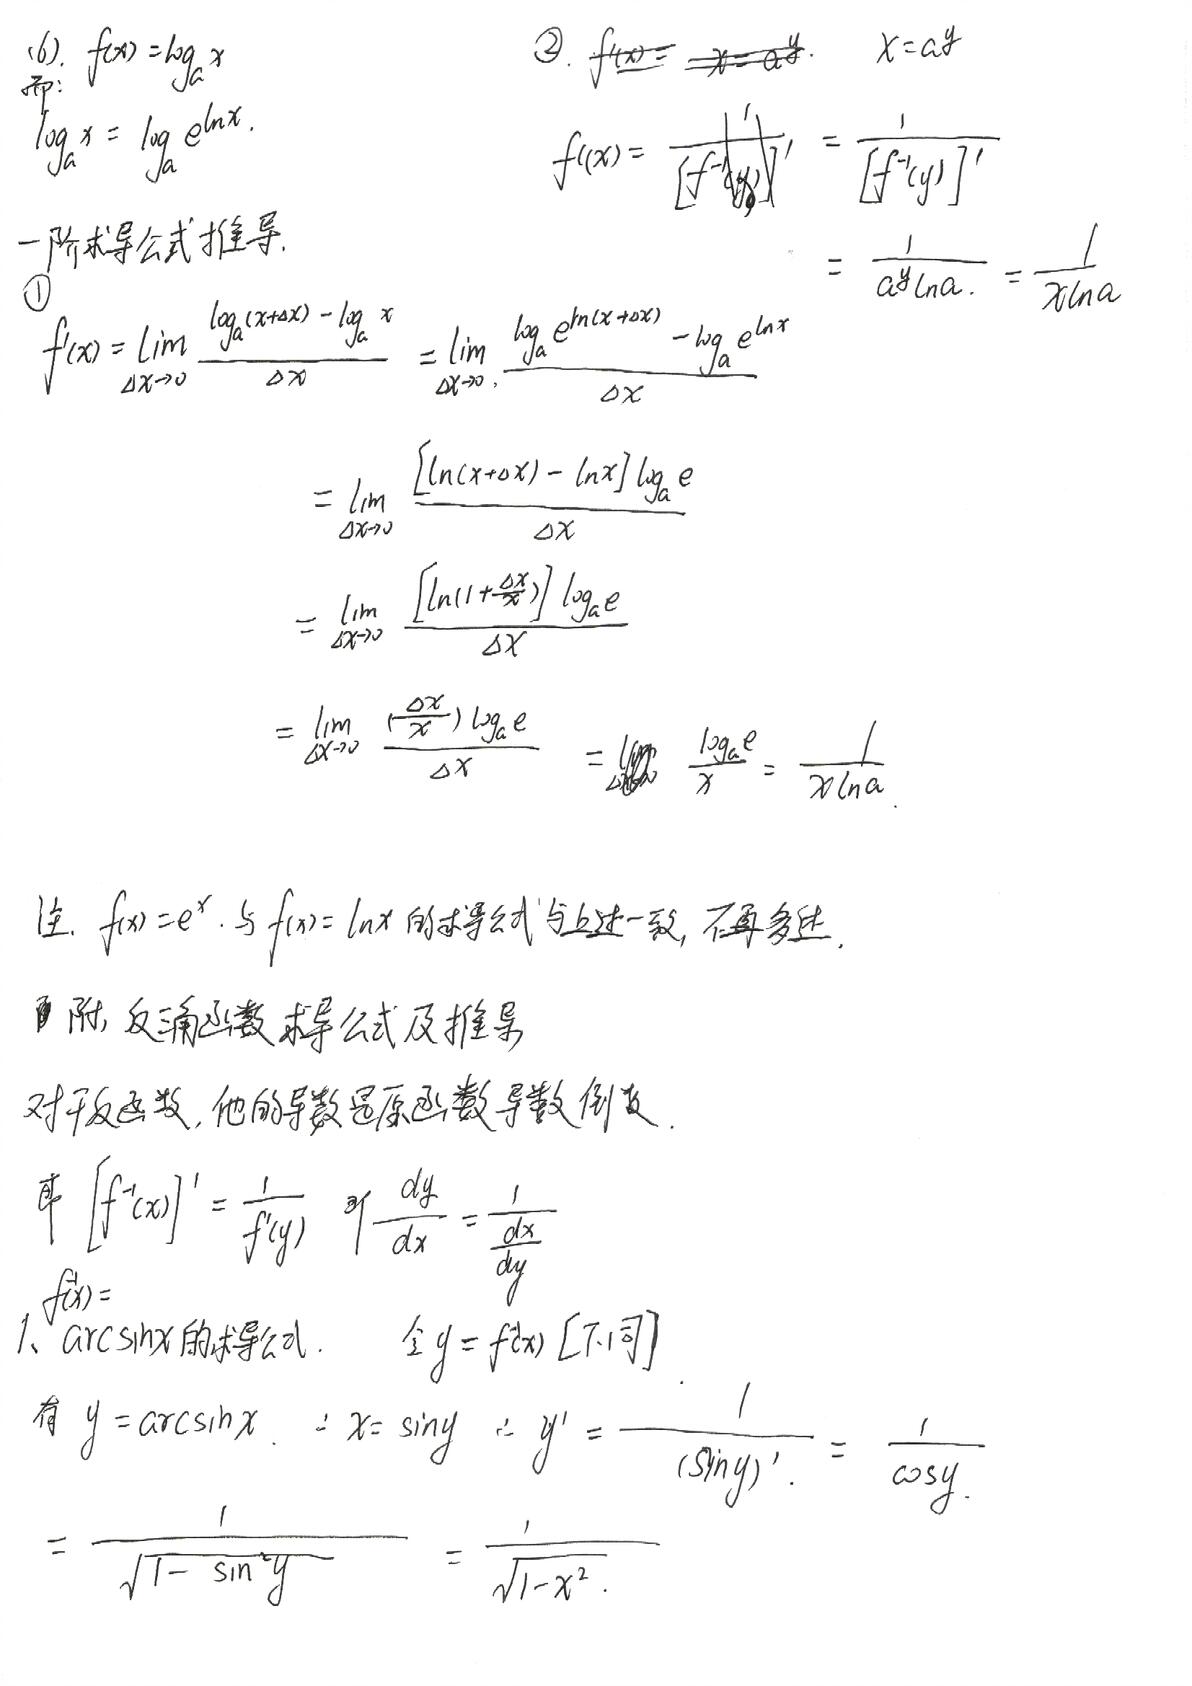 (6). f(x)=logₐx
即:
logₐx = logₐe^{lnx}.
一阶求导公式推导.
①
f'(x) = lim_{Δx→0} (logₐ(x+Δx) - logₐx)/Δx = lim_{Δx→0} (logₐe^{ln(x+Δx)} - logₐe^{lnx})/Δx
= lim_{Δx→0} [ln(x+Δx) - lnx]logₐe/Δx
= lim_{Δx→0} [ln(1+Δx/x)]logₐe/Δx
= lim_{Δx→0} (Δx/x)logₐe/Δx = logₐe/x = 1/(xlna).
②. x=a^y
f'(x) = 1/[f⁻¹(y)]' = 1/[f⁻¹(y)]'
= 1/(a^y lna). = 1/(xlna)
注. f(x)=e^x.与f(x)=lnx的求导公式与上述一致,不再多述.
附,反三角函数求导公式及推导
对于反函数,他的导数是原函数导数倒数.
即 [f⁻¹(x)]' = 1/f'(y) 或 dy/dx = 1/(dx/dy)
f⁻¹(x)=
1、arcsinx的求导公式. 令y=f⁻¹(x) [下同].
有 y=arcsinx. ∴ x=siny ∴ y' = 1/(siny)'. = 1/cosy.
= 1/√(1-sin²y) = 1/√(1-x²).